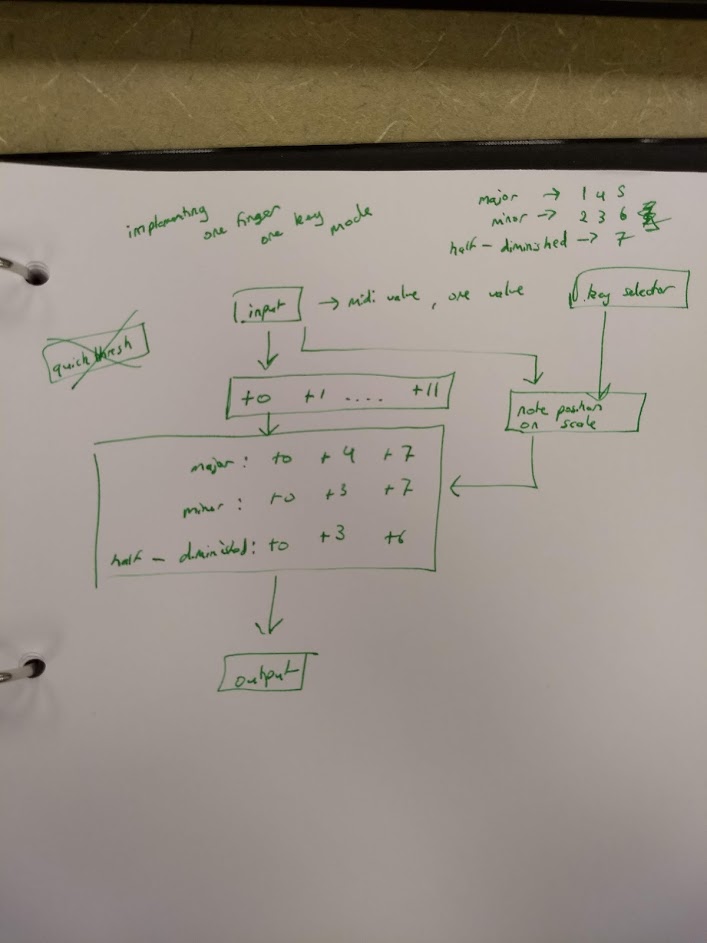 implementing
one finger
one key mode
major → 1 4 5
minor → 2 3 6
half - diminished → 7
input → midi value, one value
key selector
quick thresh
+0 +1 .... +11
note position
on scale
major : +0 +4 +7
minor : +0 +3 +7
half - diminished : +0 +3 +6
output